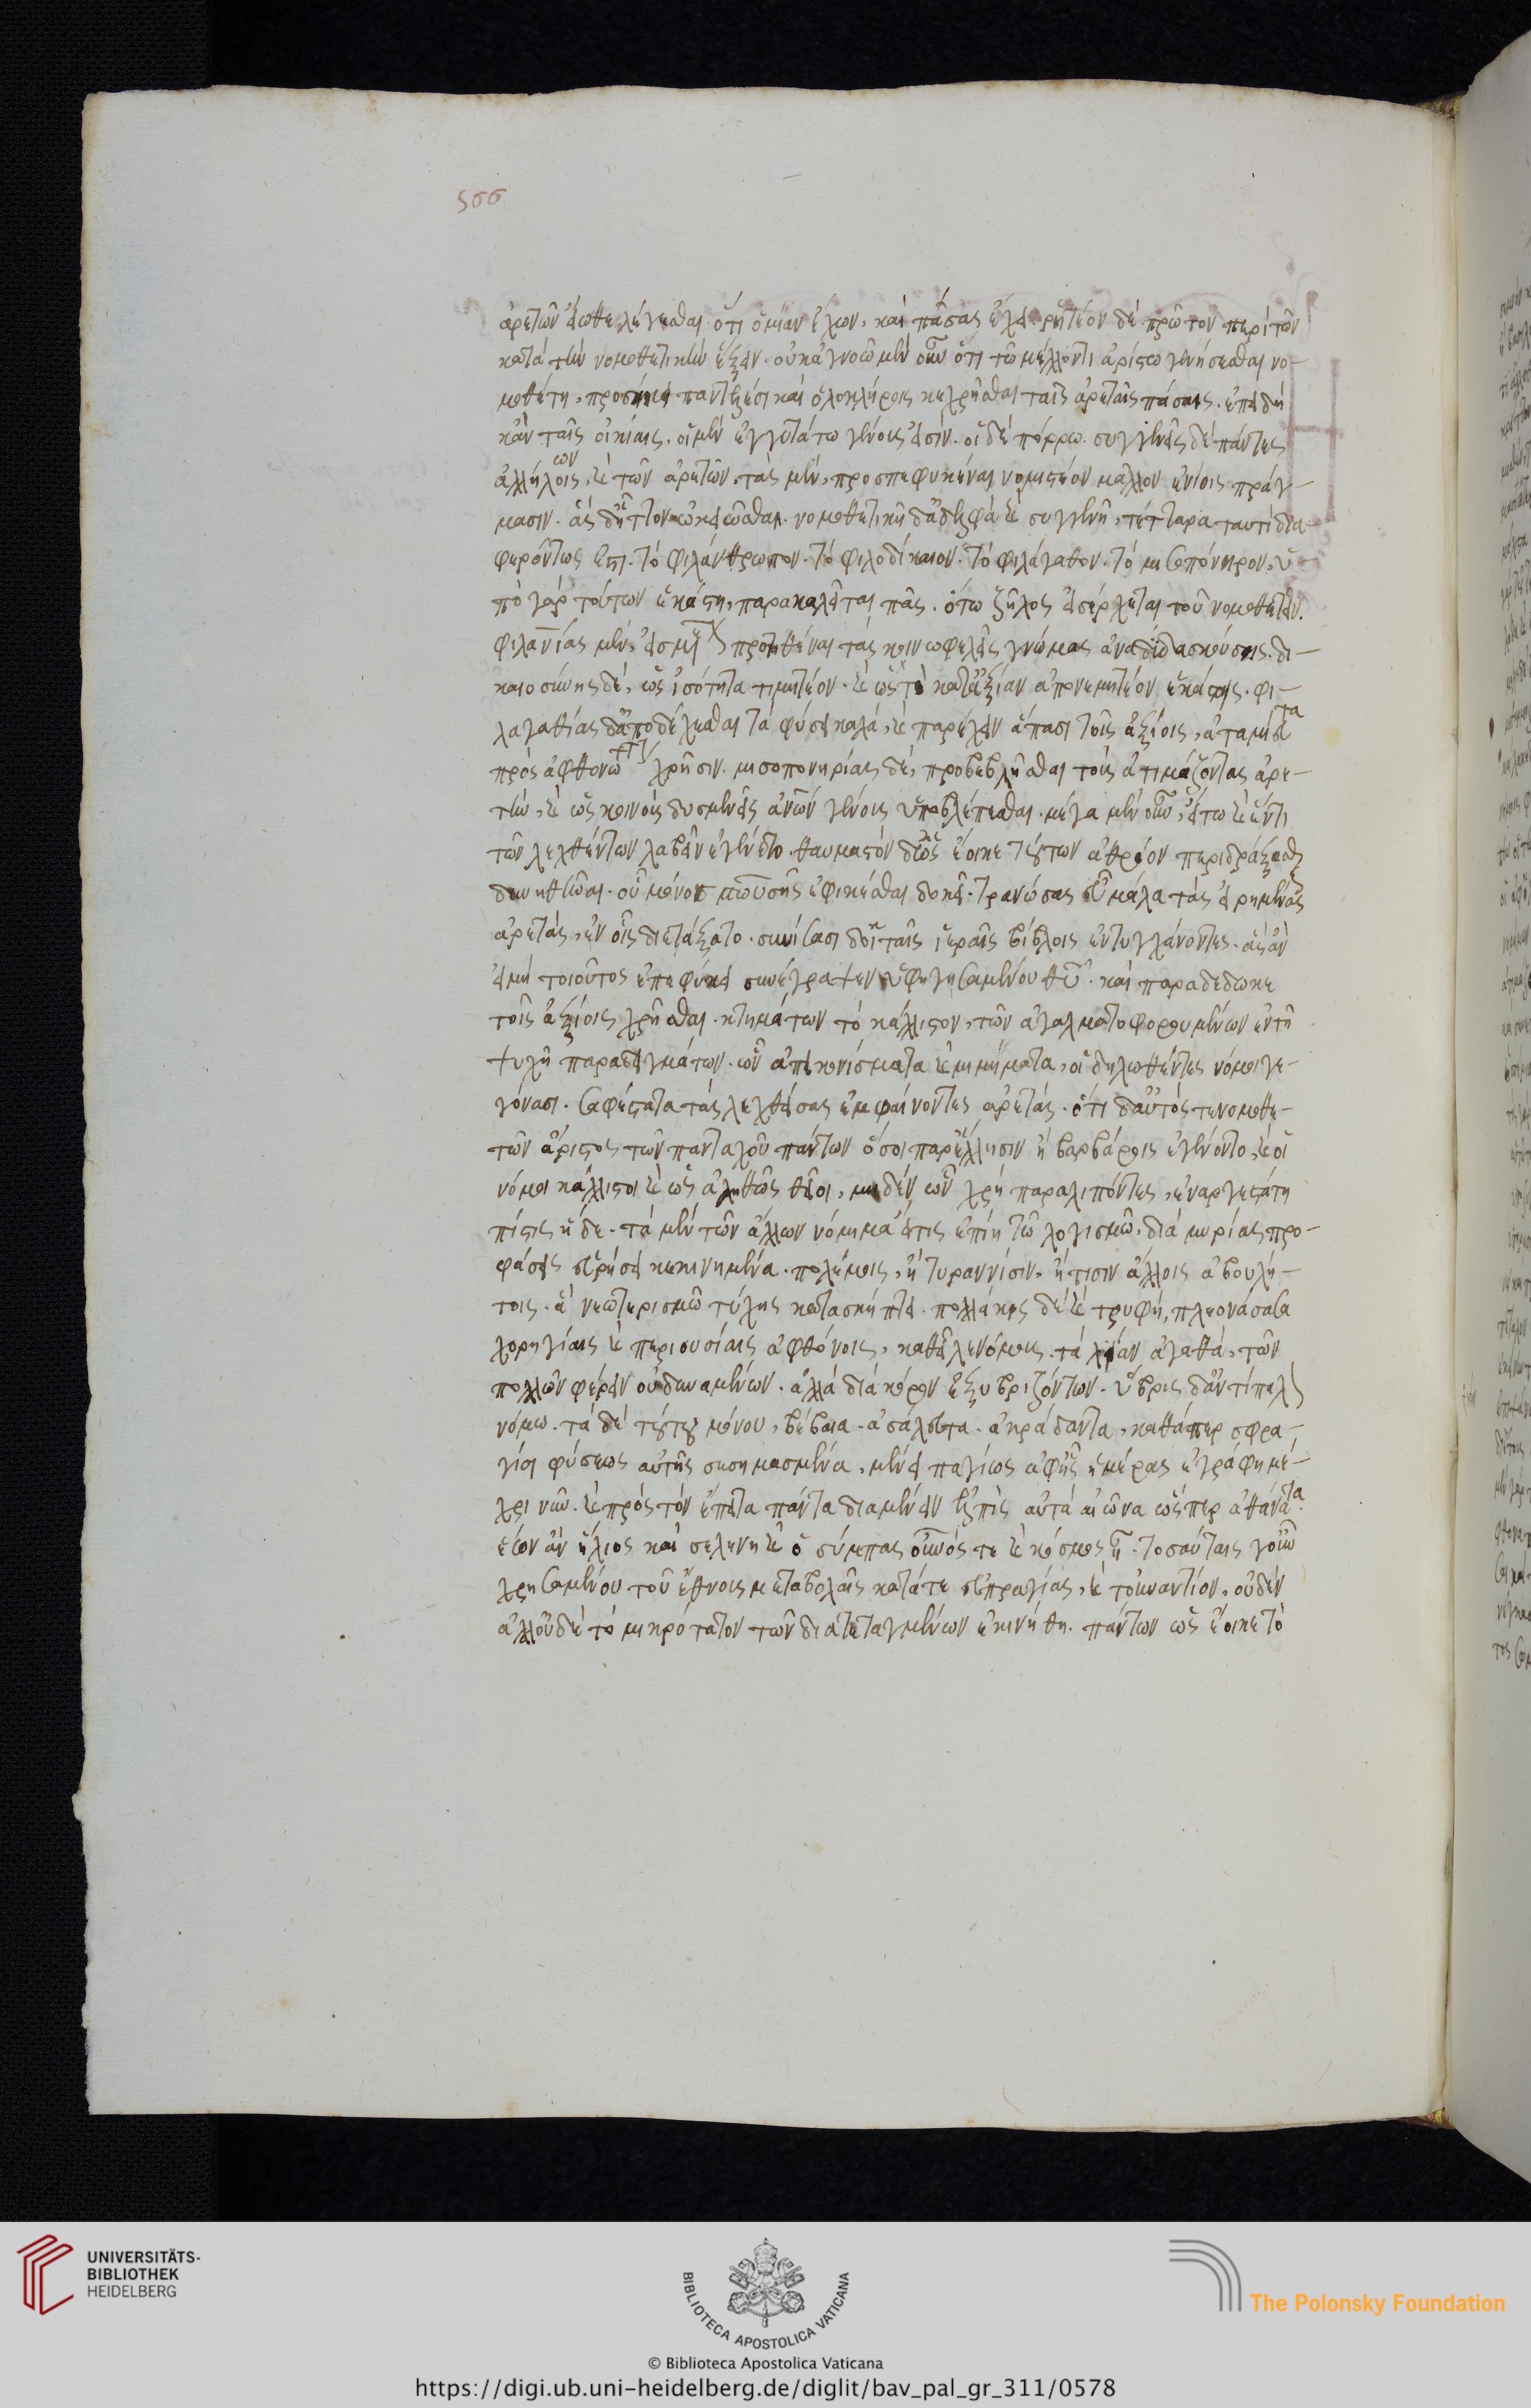 ἀρετῶν εἴωθε λέγεσθαι. ὅτι ὁ μίαν ἔχων, καὶ πάσας ἔχει. ῥητέον δὲ πρῶτον περὶ τῶν
κατὰ τὴν νομοθετικὴν ἕξιν. οὐκ ἀγνοῶ μὲν οὖν ὅτι τῷ μέλλοντι ἀρίστῳ γενήσεσθαι νο-
μοθέτῃ, προσήκει παντελέσι καὶ ὁλοκλήροις κεχρῆσθαι ταῖς ἀρεταῖς πάσαις. ἐπειδὴ
κἂν ταῖς οἰκίαις, οἱ μὲν ἐγγυτάτω γένους εἰσίν. οἱ δὲ πόρρω. συγγενεῖς δὲ πάντες
ων
ἀλλήλοις, καὶ τῶν ἀρετῶν, τὰς μὲν, προσπεφυκέναι νομιστέον μᾶλλον ἐνίοις πράγ-
μασιν. ἃς δ' ἧττον ὠκειῶσθαι. νομοθετικῇ δ' ἀδελφὰ καὶ συγγενῆ, τέτταρα ταυτὶ δια-
φερόντως ἐστι. τὸ φιλάνθρωπον. τὸ φιλοδίκαιον. τὸ φιλάγαθον. τὸ μισοπόνηρον, ὑ-
πὸ γὰρ τούτων ἑκάστη, παρακαλεῖται πᾶς. ὅτῳ ζῆλος εἰσέρχεται τοῦ νομοθετεῖν.
φιλανίας μὲν, εἰς μέσον προτιθέναι τὰς κοινωφελεῖς γνώμας ἀναδιδασκούσης. δι-
καιοσύνης δὲ, ὡς ἰσότητα τιμητέον. καὶ ὡς τὸ κατ' ἀξίαν ἀπονεμητέον ἑκάστοις. φι-
λαγαθίας δ' ἀποδέχεσθαι τὰ φύσει καλὰ, καὶ παρέχειν ἅπασι τοῖς ἀξίοις, ἀταμίευτα
πρὸς ἀφθονωτάτην χρῆσιν. μισοπονηρίας δὲ, προβεβλῆσθαι τοὺς ἀτιμάζοντας ἀρε-
τὴν, καὶ ὡς κοινοὺς δυσμενεῖς ἀνων γένους ὑποβλέπεσθαι. μέγα μὲν οὖν, εἴ τῳ καὶ ἕν τι
τῶν λεχθέντων λαβεῖν ἐγένετο. θαυμαστὸν δ' ὡς ἔοικε τούτων ἀθρόον περιδράξασθαι
δυνηθῆναι. οὗ μόνος μωυσῆς ἐφικέσθαι δοκεῖ. τρανώσας εὖ μάλα τὰς εἰρημένας
ἀρετὰς, ἐν οἷς διετάξατο. συνίσασι δ' οἱ ταῖς ἱεραῖς βίβλοις ἐντυγχάνοντες. ἃς ἂν
εἰ μὴ τοιοῦτος ἐπεφύκει συνέγραψεν ὑφηγησαμένου θυ. καὶ παραδέδωκε
τοῖς ἀξίοις χρῆσθαι. κτημάτων τὸ κάλλιστον, τῶν ἀγαλματοφορουμένων ἐν τῇ
ψυχῇ παραδειγμάτων. ὧν ἀπεικονίσματα καὶ μιμήματα, οἱ δηλωθέντες νόμοι γε-
γόνασι. σαφέστατα τὰς λεχθείσας ἐμφαίνοντες ἀρετάς. ὅτι δ' αὐτός τε νομοθε-
τῶν ἄριστος τῶν πανταχοῦ πάντων ὅσοι παρ' ἕλλησιν ἢ βαρβάροις ἐγένοντο, καὶ οἱ
νόμοι κάλλιστοι καὶ ὡς ἀληθῶς θεῖοι, μηδὲν ὧν χρὴ παραλιπόντες, ἐναργεστάτη
πίστις ἥδε. τὰ μὲν τῶν ἄλλων νόμιμα εἴ τις ἐπίῃ τῷ λογισμῷ, διὰ μυρίας προ-
φάσεις εὑρήσει κεκινημένα. πολέμοις, ἢ τυραννίσιν, ἤ τισιν ἄλλοις ἀβουλή-
τοις. ἃ νεωτερισμῷ τύχης κατασκήπτει. πολλάκις δὲ καὶ τρυφὴ, πλεονάσασα
χορηγίαις καὶ περιουσίαις ἀφθόνοις, καθεῖλε νόμους. τὰ λίαν ἀγαθὰ, τῶν
πολλῶν φέρειν οὐ δυναμένων. ἀλλὰ διὰ κόρον ἐξυβριζόντων. ὕβρις δ' ἀντίπαλον
νόμῳ. τὰ δὲ τούτου μόνου, βέβαια. ἀσάλευτα. ἀκράδαντα, καθάπερ σφρα-
γίσι φύσεως αὐτῆς σεσημασμένα, μένει παγίως ἀφ' ἧς ἡμέρας ἐγράφη μέ-
χρι νῦν. καὶ πρὸς τὸν ἔπειτα πάντα διαμενεῖν ἐλπὶς αὐτὰ αἰῶνα ὥσπερ ἀθάνατα.
ἕως ἂν ἥλιος καὶ σελήνη καὶ ὁ σύμπας οὐνός τε καὶ κόσμος ᾖ. τοσαύταις γοῦν
χρησαμένου τοῦ ἔθνους μεταβολαῖς κατά τε εὐπραγίας, καὶ τοὐναντίον, οὐδὲν
ἀλλ' οὐδὲ τὸ μικρότατον τῶν διατεταγμένων ἐκινήθη. πάντων ὡς ἔοικε τὸ
UNIVERSITÄTS-
BIBLIOTHEK
HEIDELBERG
BIBLIOTECA APOSTOLICA VATICANA
The Polonsky Foundation
© Biblioteca Apostolica Vaticana
https://digi.ub.uni-heidelberg.de/diglit/bav_pal_gr_311/0578